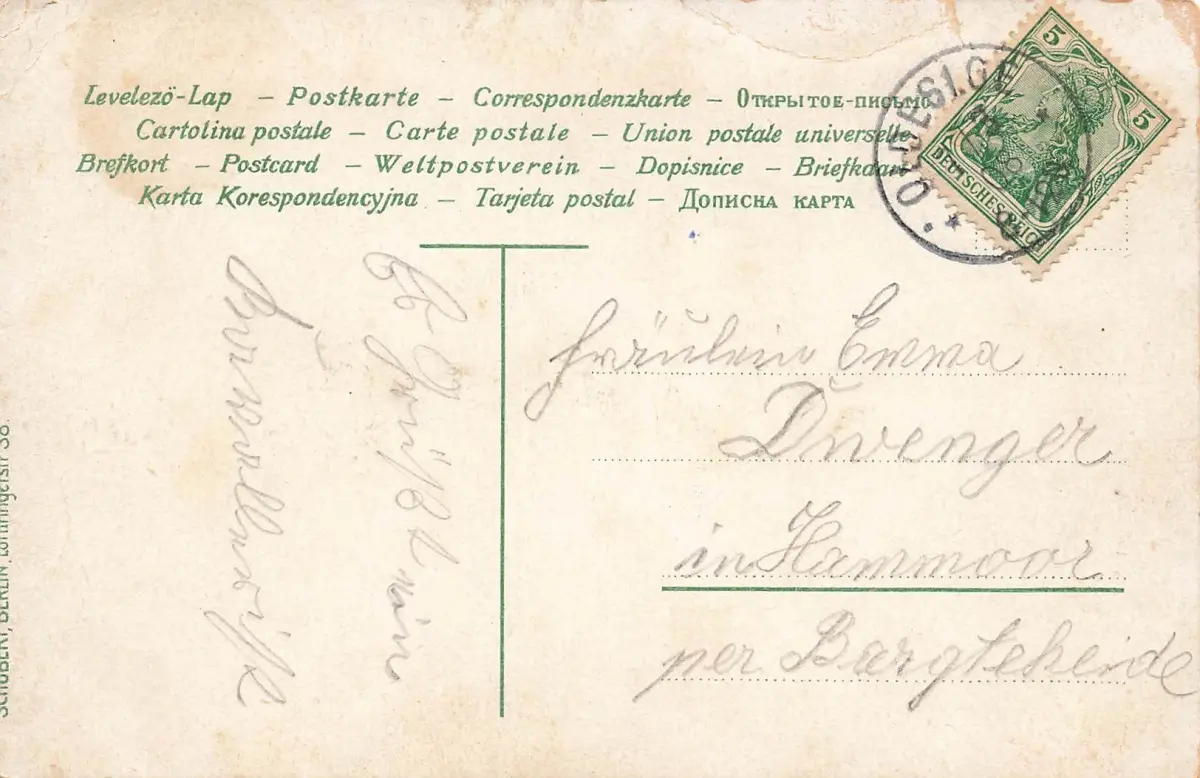 Levelező-Lap – Postkarte – Correspondenzkarte – Открытое-письмо
Cartolina postale – Carte postale – Union postale universelle
Brefkort – Postcard – Weltpostverein – Dopisnice – Briefkaart
Karta Korespondencyjna – Tarjeta postal – Дописна карта
5
5
DEUTSCHES REICH
OLDESLOE
Es grüßt
Fräulein Emma
Dwenger
in Hammoor
per Bargteheide
SCHUBERT, BERLIN, Lothringerstr 38.